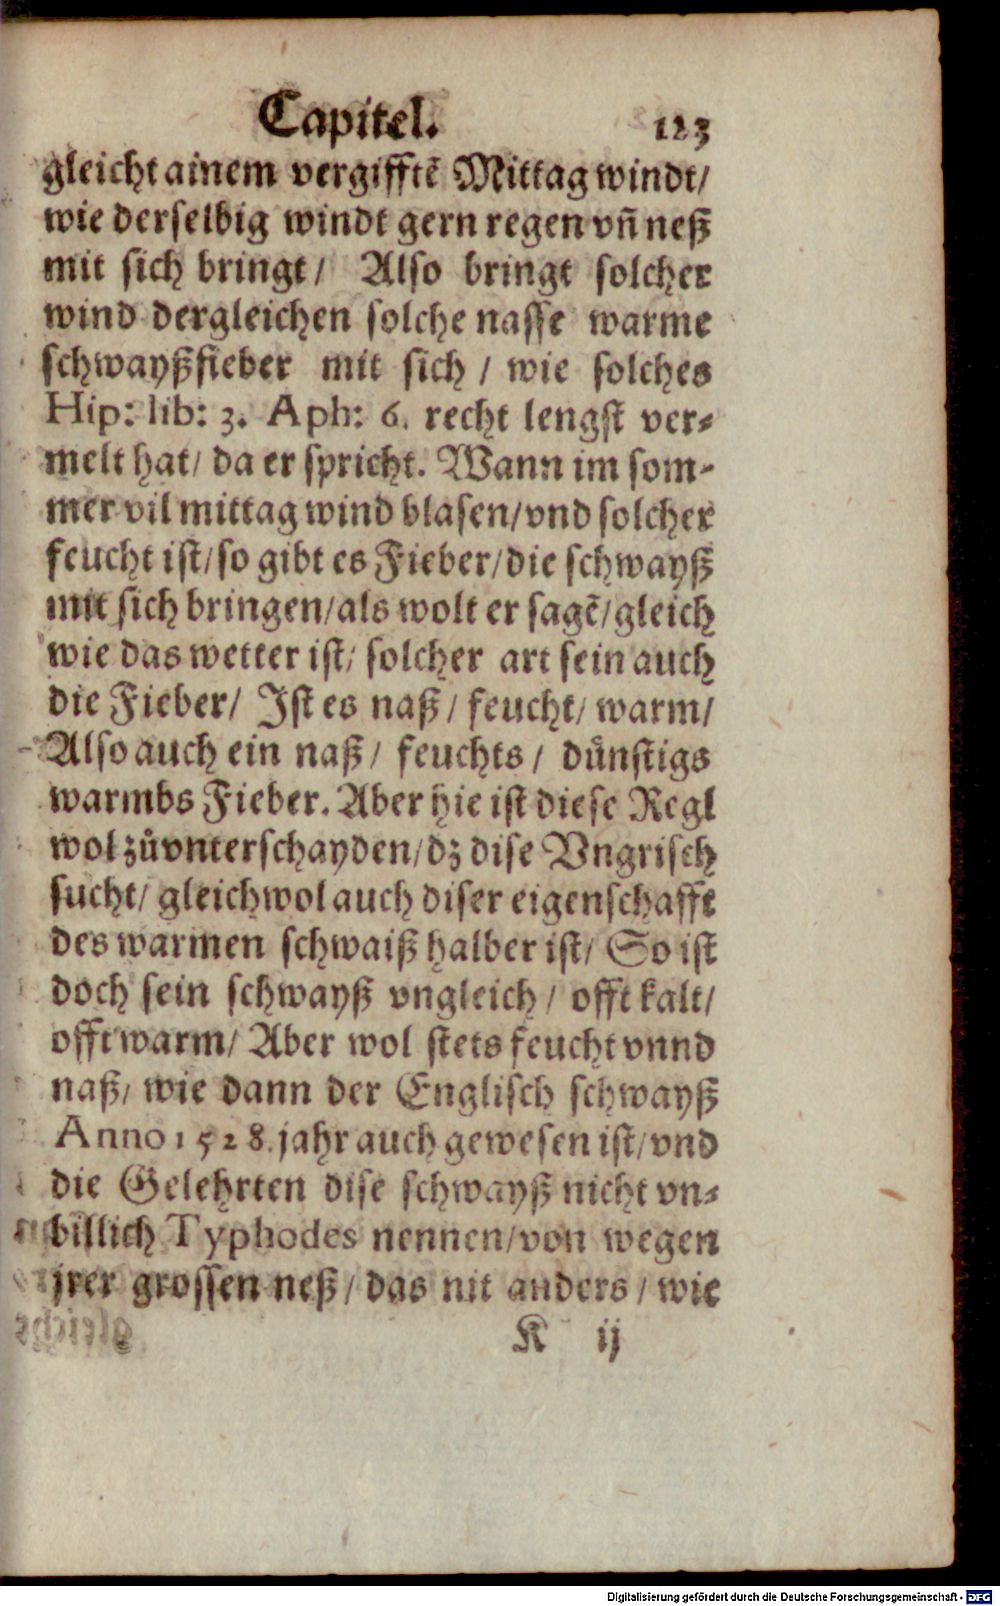 Capitel. 123
gleicht ainem vergifftẽ Mittag windt/
wie derselbig windt gern regen vñ neß
mit sich bringt/ Also bringt solcher
wind dergleichen solche nasse warme
schwayßfieber mit sich / wie solches
Hip: lib: 3. Aph: 6. recht lengst ver⸗
melt hat/ da er spricht. Wann im som⸗
mer vil mittag wind blasen/vnd solcher
feucht ist/so gibt es Fieber/die schwayß
mit sich bringen/als wolt er sagẽ/gleich
wie das wetter ist/ solcher art sein auch
die Fieber/ Ist es naß / feucht/ warm/
Also auch ein naß / feuchts / dünstigs
warmbs Fieber. Aber hie ist diese Regl
wol zůvnterschayden/dz dise Vngrisch
sucht/ gleichwol auch diser eigenschafft
des warmen schwaiß halber ist/ So ist
doch sein schwayß vngleich / offt kalt/
offt warm/ Aber wol stets feucht vnnd
naß/ wie dann der Englisch schwayß
Anno 1528. jahr auch gewesen ist/vnd
die Gelehrten dise schwayß nicht vn⸗
billich Typhodes nennen/von wegen
jrer grossen neß / das nit anders / wie
K ij
Digitalisierung gefördert durch die Deutsche Forschungsgemeinschaft - DFG